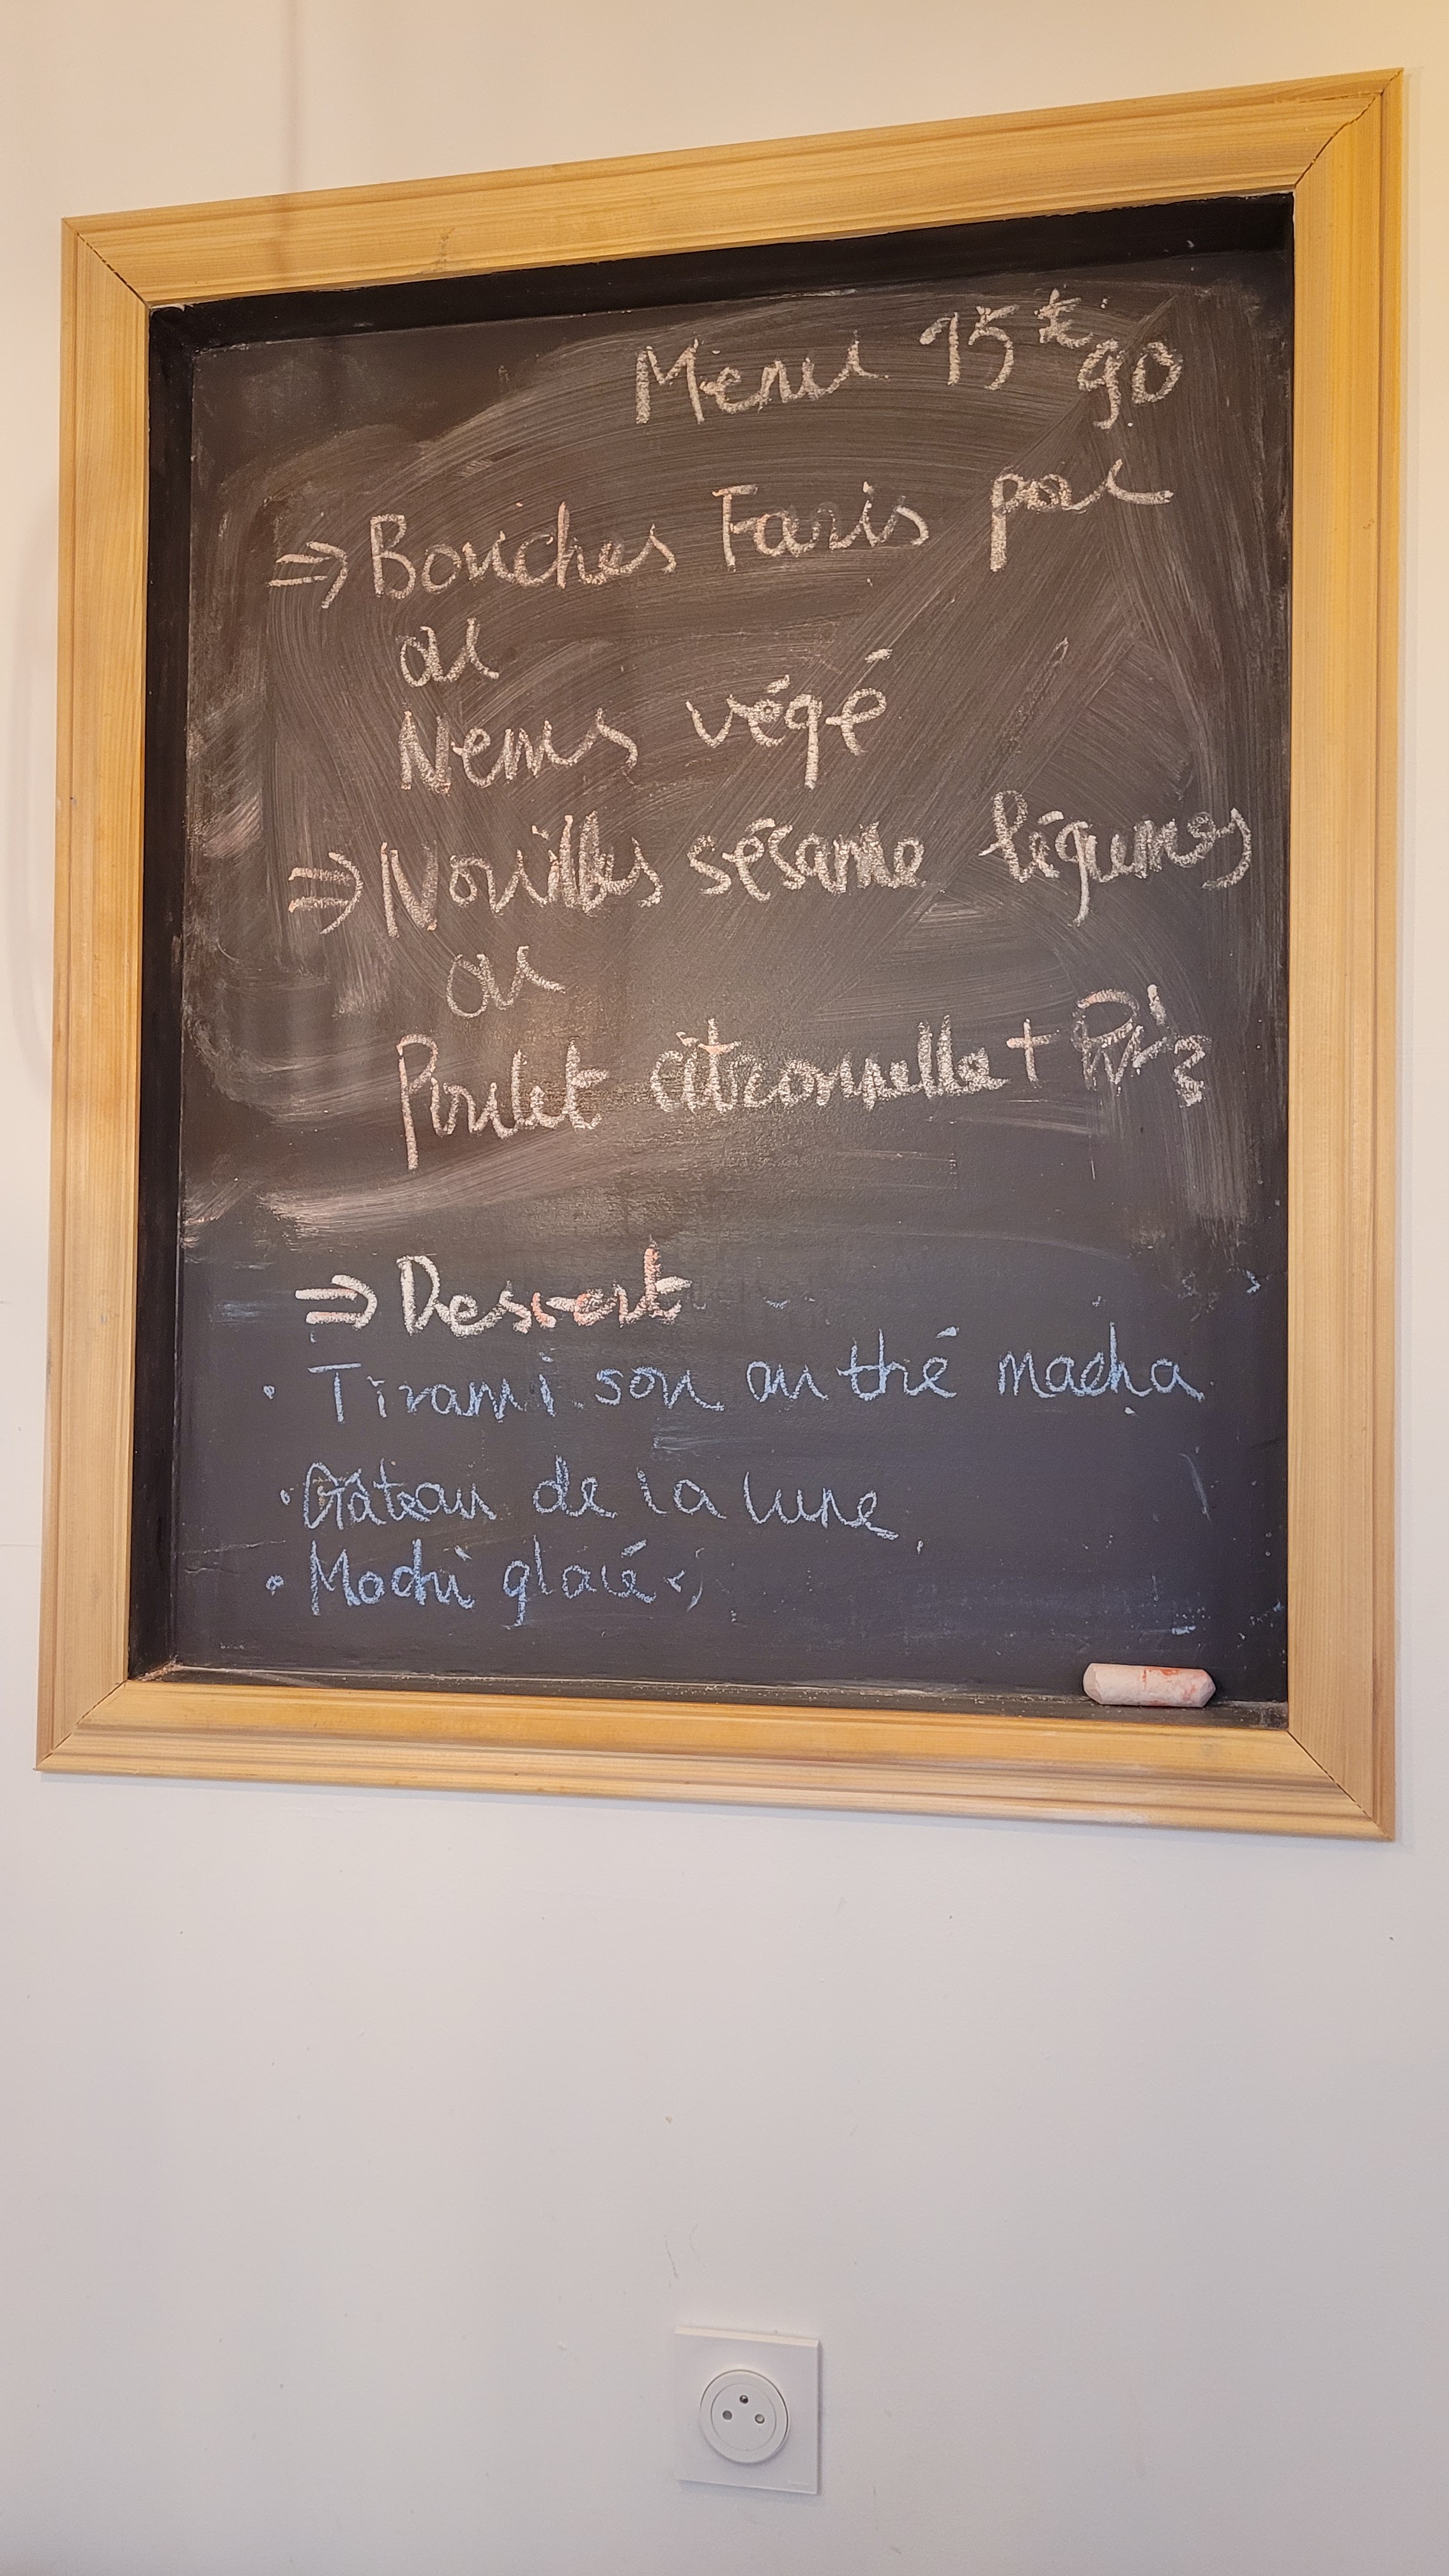 Menu 15€90
⇒ Bouches Faris par
ou
Nems végé
⇒ Nouilles sésame légumes
ou
Poulet citronnelle + Riz
⇒ Dessert
• Tirami sou au thé macha
• Gâteau de la lune
• Mochi glacé